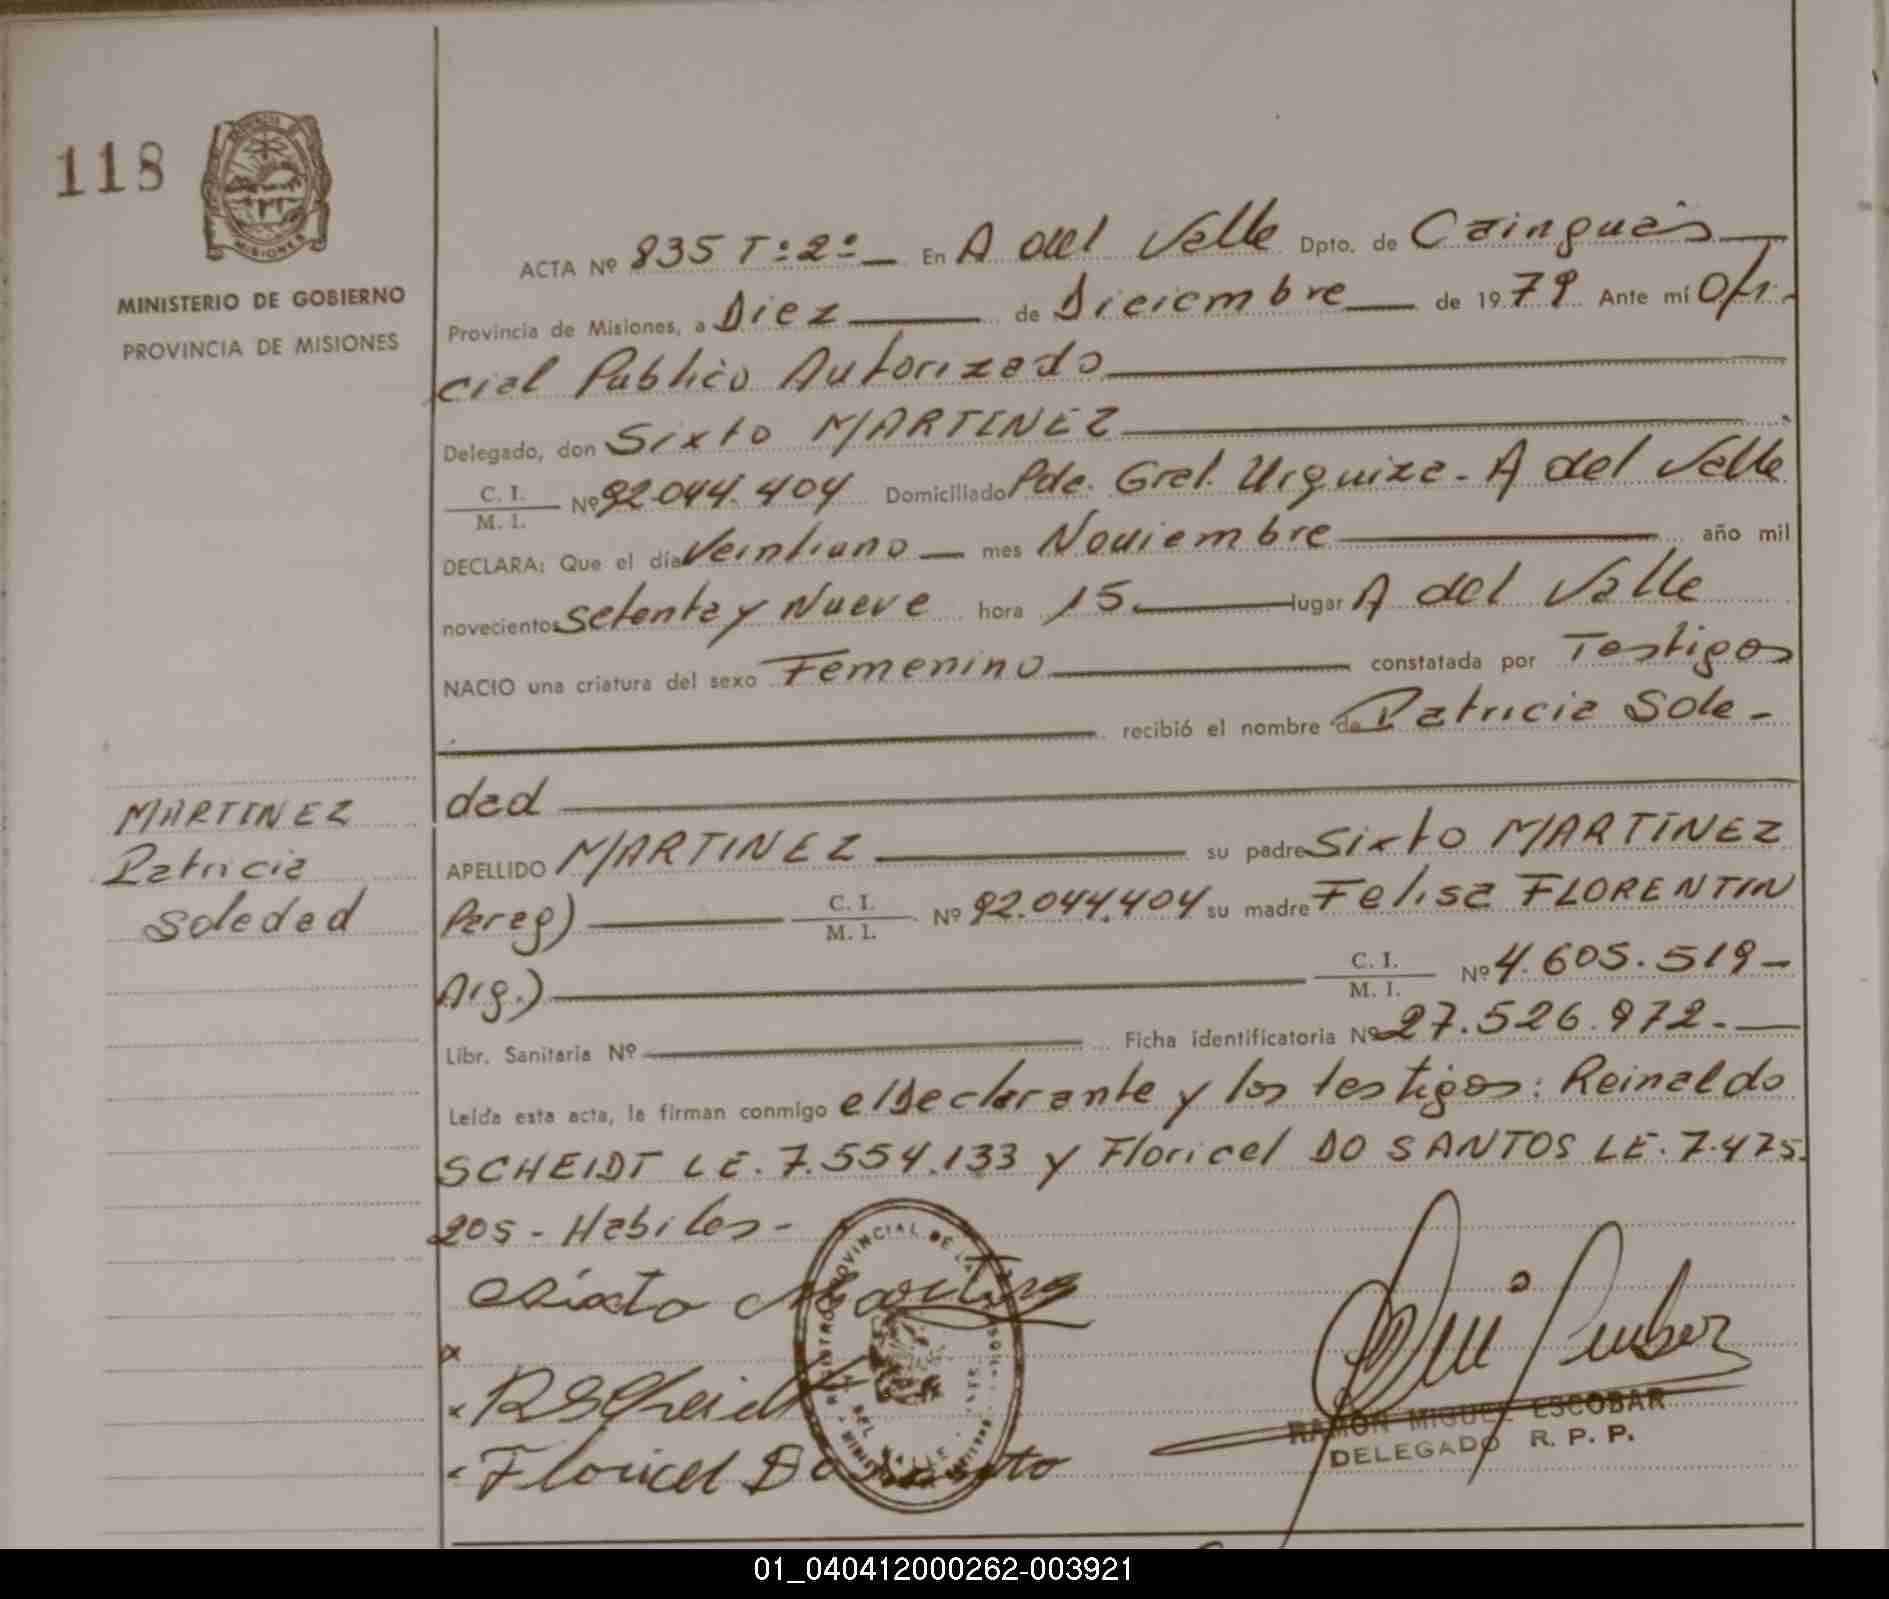 118
MINISTERIO DE GOBIERNO
PROVINCIA DE MISIONES
ACTA Nº 835 Tº 2º En A del Valle Dpto. de Cainguás
Provincia de Misiones, a Diez de Diciembre de 1979 Ante mí Ofi-
cial Publico Autorizado
Delegado, don Sixto MARTINEZ
C. I.
M. I. Nº 92.044.404 Domiciliado Pde. Gral. Urquiza - A del Valle
DECLARA: Que el día Veintiuno mes Noviembre año mil
novecientos Setenta y Nueve hora 15 lugar A del Valle
NACIO una criatura del sexo Femenino constatada por Testigos
recibió el nombre de Patricia Sole-
dad
MARTINEZ
Patricia
Soledad
APELLIDO MARTINEZ su padre Sixto MARTINEZ
Parag) C. I.
M. I. Nº 92.044.404 su madre Felisa FLORENTIN
Arg.) C. I.
M. I. Nº 4.605.519-
Libr. Sanitaria Nº Ficha identificatoria Nº 27.526.972.-
Leída esta acta, la firman conmigo el Declarante y los testigos: Reinaldo
SCHEIDT LE. 7.554.133 y Floricel DO SANTOS LE. 7.475.
205 - Habiles -
Sixto Martinez
x
x RScheidt
x Floricel Do Santo
RAMON MIGUEL ESCOBAR
DELEGADO R. P. P.
REGISTRO PROVINCIAL DE LA
DEL VALLE
01_040412000262-003921